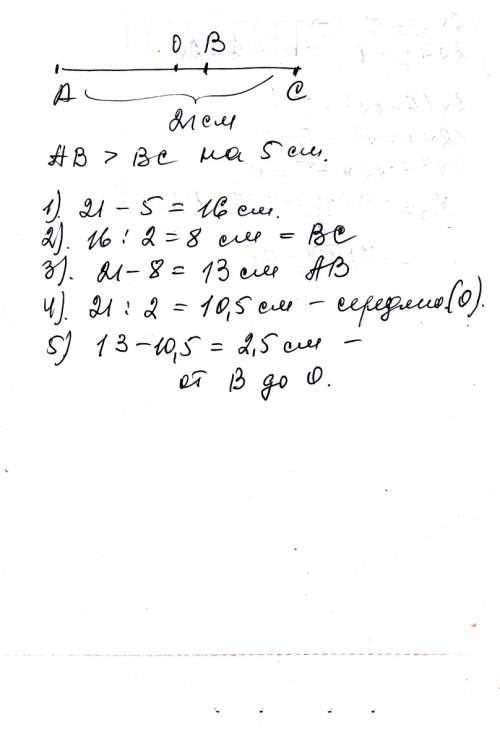 О В
А С
21 см
АВ > ВС на 5 см.
1). 21 - 5 = 16 см.
2). 16 : 2 = 8 см = ВС
3). 21 - 8 = 13 см АВ
4). 21 : 2 = 10,5 см - середина.(О).
5) 13 - 10,5 = 2,5 см -
от В до О.